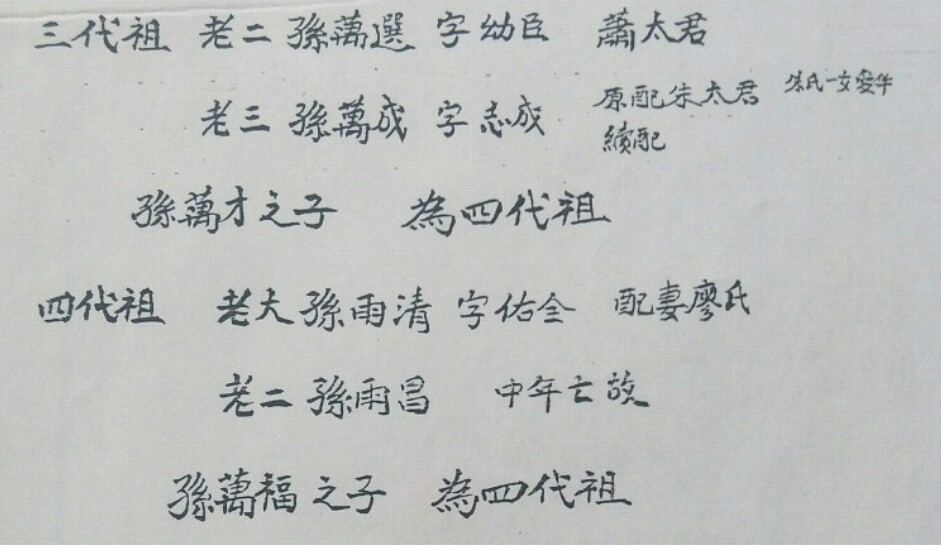 三代祖 老二孫萬選 字幼臣 蕭太君
老三孫萬成 字志成 原配朱太君 朱氏一女愛华
續配
孫萬才之子 為四代祖
四代祖 老大孫雨清 字佑全 配妻廖氏
老二孫雨昌 中年亡故
孫萬福之子 為四代祖